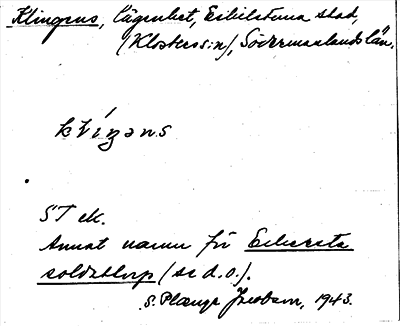 Klingens, lägenhet, Eskilstuna stad,
(Klosters sn), Södermanlands län.
klíŋəns
ST ek.
Annat namn för Ekersta
soldattorp (se d.o.).
S. Plange Jacobson, 1943.